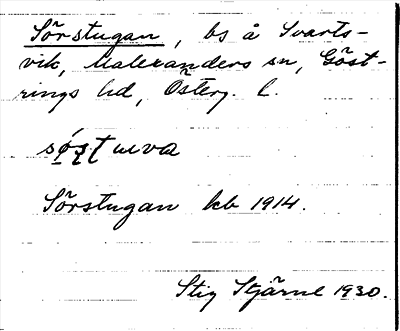 Sörstugan, bs å Svarts-
vik, Malexanders sn, Göst-
rings hd, Österg. l.
Sörstugan kb 1914.
Stig Stjärne 1930.